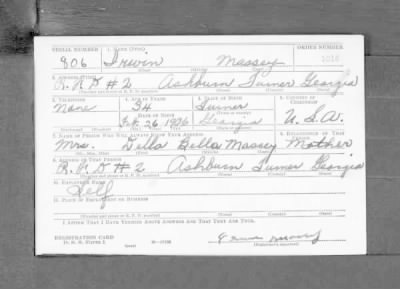 SERIAL NUMBER 1. NAME (Print) ORDER NUMBER
806 Irwin Massey
(First) (Middle) (Last)
2. ADDRESS (Print)
R.F.D #2 Ashburn Turner Georgia
3. TELEPHONE 4. AGE IN YEARS 5. PLACE OF BIRTH 6. COUNTRY OF CITIZENSHIP
None 34 Turner
DATE OF BIRTH
Feb 26 1906 Georgia U.S.A.
7. NAME OF PERSON WHO WILL ALWAYS KNOW YOUR ADDRESS 8. RELATIONSHIP OF THAT PERSON
Mrs. Della Massey Mother
9. ADDRESS OF THAT PERSON
R.F.D #2 Ashburn Turner Georgia
10. EMPLOYER'S NAME
Self
11. PLACE OF EMPLOYMENT OR BUSINESS
I AFFIRM THAT I HAVE VERIFIED ABOVE ANSWERS AND THAT THEY ARE TRUE.
REGISTRATION CARD
D. S. S. FORM 1
(Registrant's signature)